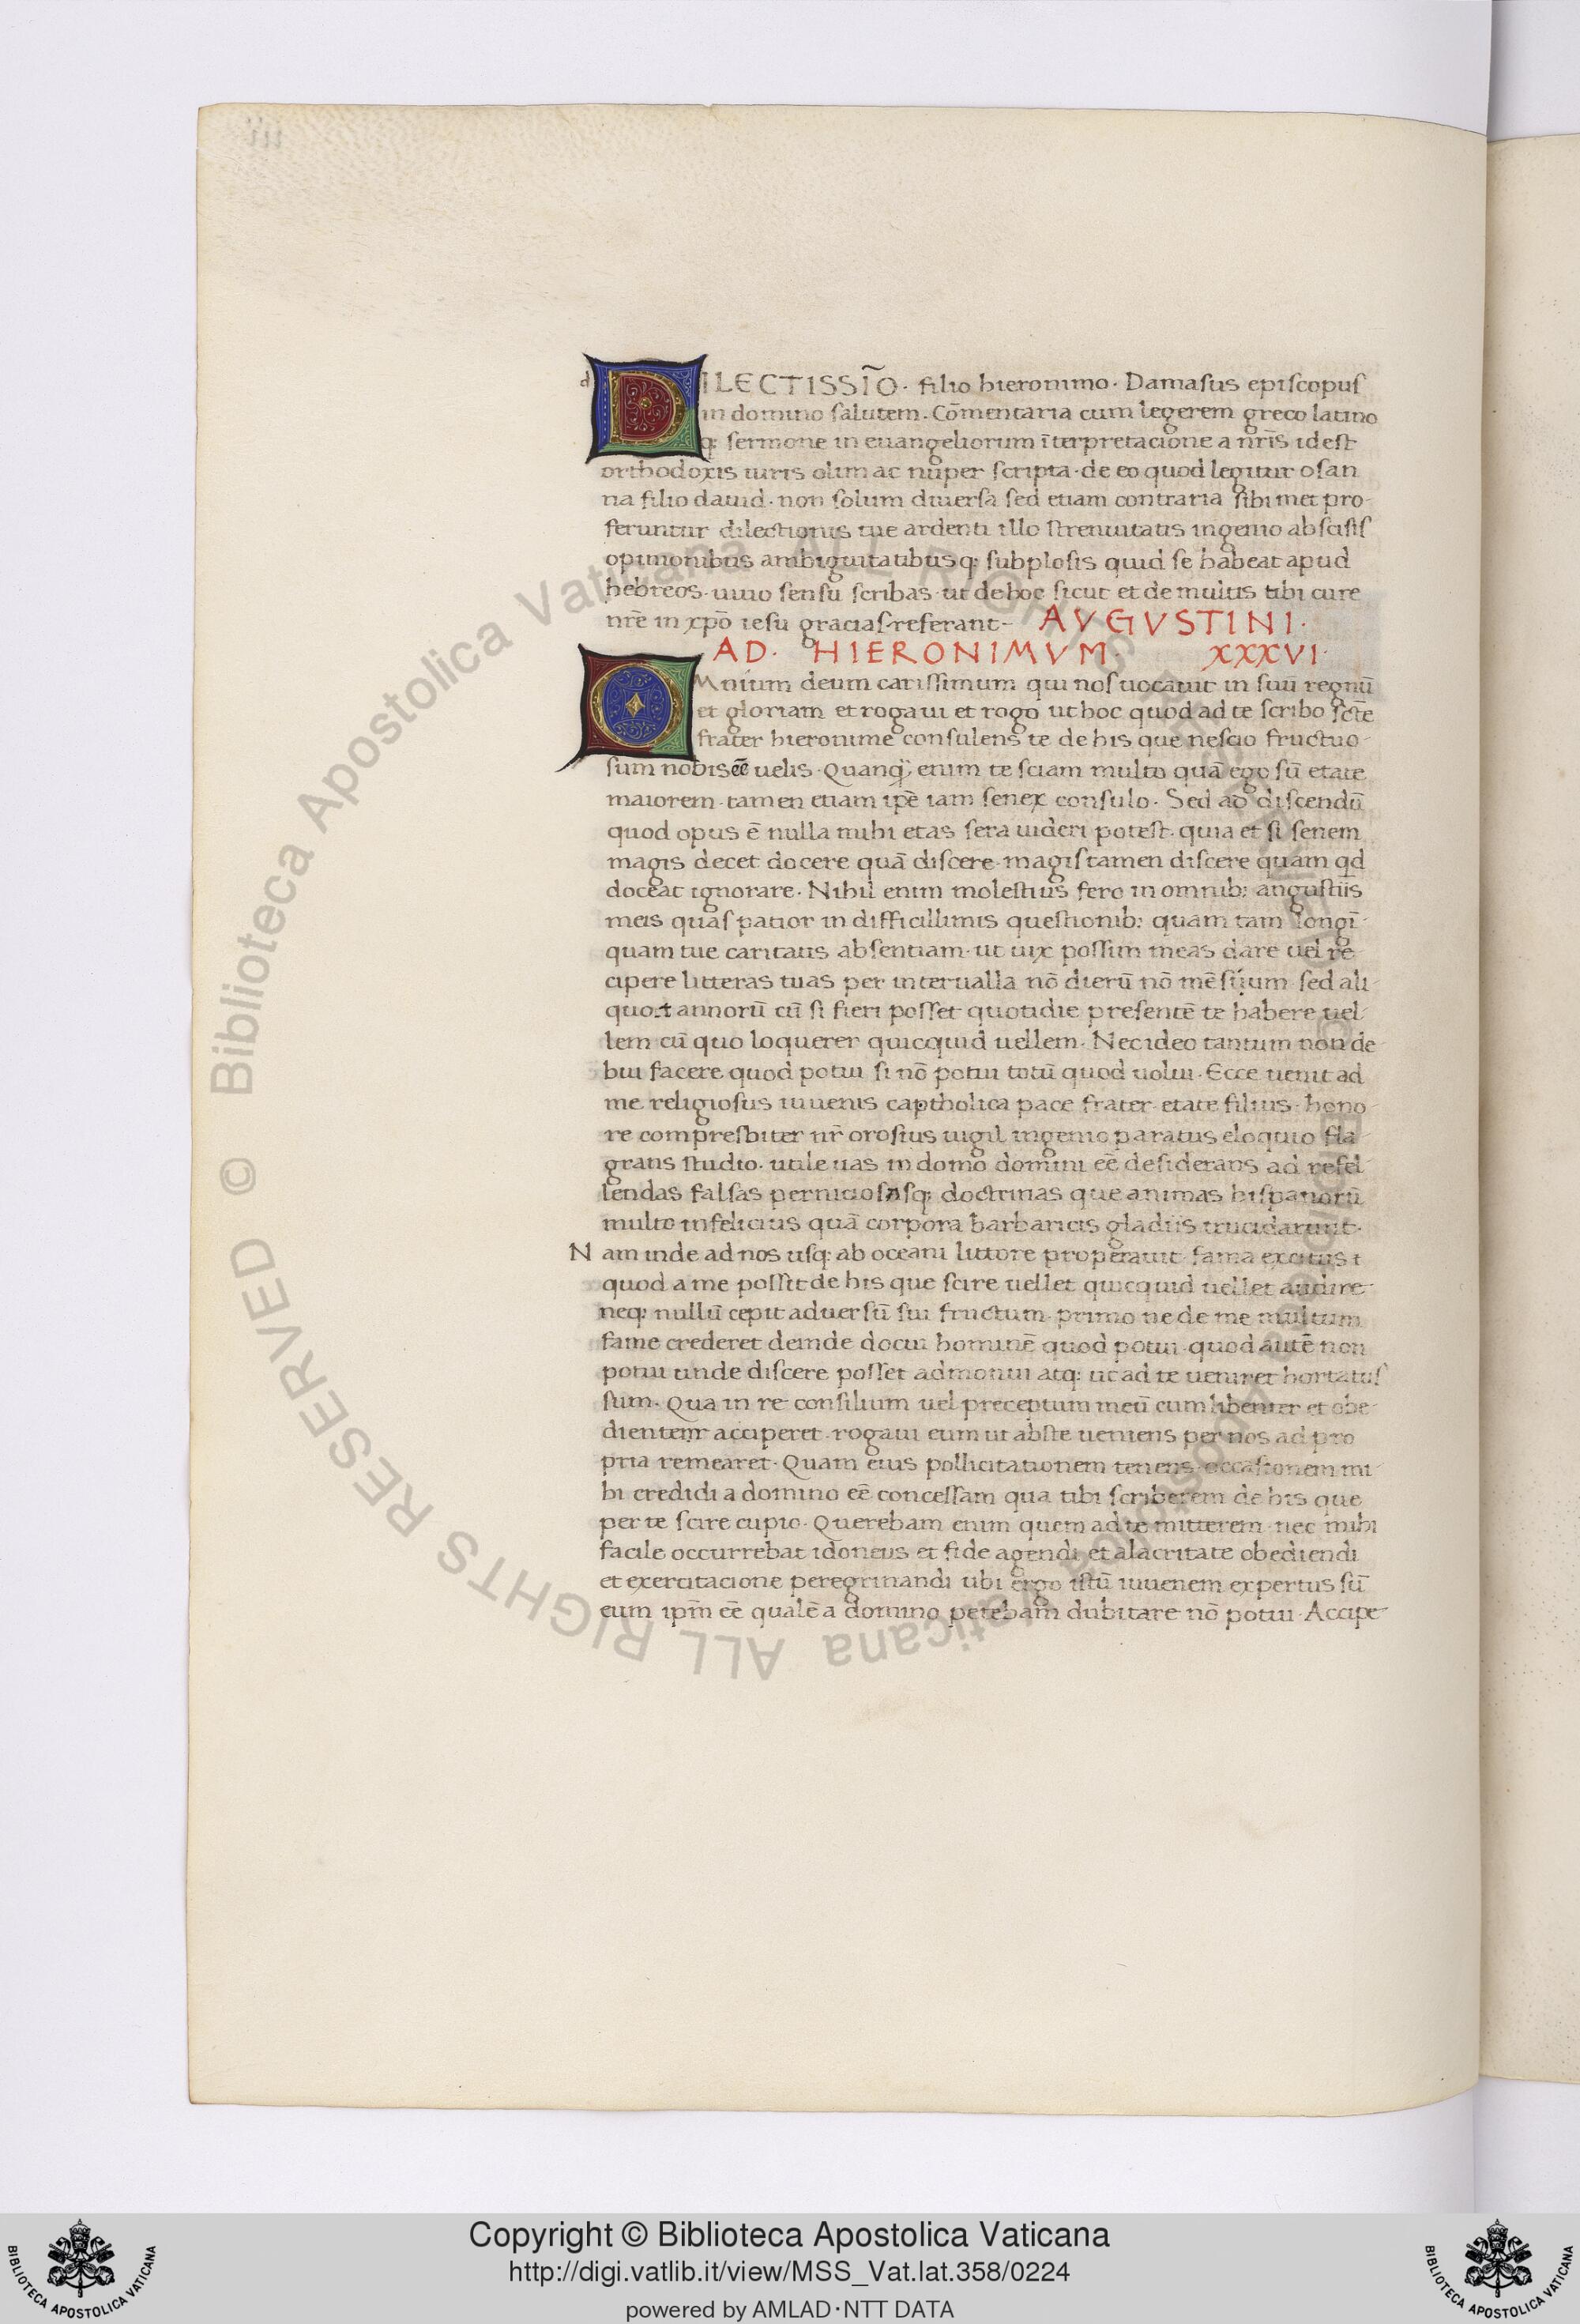 iii
d
DILECTISSIO̅ · filio hieronimo · Damasus episcopus
in domino salutem · Cōmentaria cum legerem greco latino
q; sermone in euangeliorum īterpretacione a nr̄is idest
orthodoxis uiris olim ac nuper scripta · de eo quod legitur osan
na filio dauid · non solum diuersa sed etiam contraria sibimet pro-
feruntur dilectionis tue ardenti illo strenuitatis ingenio abscisis
opinionibus ambiguitatibusq; subplosis quid se habeat apud
hebreos · uiuo sensu scribas · ut de hoc sicut et de multis tibi cure
nr̄e in xp̄o iesu gracias referant - AVGVSTINI ·
AD · HIERONIMVM · XXXVI ·
OMnium deum carissimum qui nos uocauit in suū regnū
et gloriam et rogaui et rogo ut hoc quod ad te scribo sc̄te
frater hieronime consulens te de his que nescio fructuo-
sum nobis eē uelis · Quanq̄ enim te sciam multo quā ego sū etate
maiorem · tamen etiam ip̄e iam senex consulo · Sed ad discendū
quod opus ē nulla mihi etas sera uideri potest · quia et si senem
magis decet docere quā discere · magis tamen discere quam qd
doceat ignorare · Nihil enim molestius fero in omnib; angustiis
meis quas patior in difficillimis questionib; quam tam longī-
quam tue caritatis absentiam · ut uix possim meas dare uel re-
cipere litteras tuas per interualla nō dierū nō mēsiium sed ali-
quot annorū cū si fieri posset quotidie presentē te habere uel-
lem cū quo loquerer quicquid uellem · Nec ideo tantum non de
bui facere quod potui si nō potui totū quod uolui · Ecce uenit ad
me religiosus iuuenis captholica pace frater · etate filius · hono-
re compresbiter nr̄ orosius uigil ingenio paratus eloquio fla-
gratis studio · utile uas in domo domini eē desiderans ad refel-
lendas falsas perniciosasq; doctrinas que animas hispanorū
multo infelicius quā corpora barbaricis gladiis trucidarunt ·
Nam inde ad nos usq; ab oceani littore properauit · fama excitus
quod a me possit de his que scire uellet quicquid uellet audire-
neq; nullū cepit aduersū sui fructum · primo ne de me multum
fame crederet deinde docui hominē quod potui · quod autē non
potui unde discere posset admonui atq; ut ad te ueniret hortatus
sum · Qua in re consilium uel preceptum meū cum libenter et obe-
dienter acciperet · rogaui eum ut abste ueniens per nos ad pro
pria remearet · Quam eius pollicitationem tenens · occasionem mi
hi credidi a domino eē concessam qua tibi scriberem de his que
per te scire cupio · Querebam enim quem ad te mitterem · nec mihi
facile occurrebat idoneus et fide agendi et alacritate obediendi
et exercitacione peregrinandi ubi ergo istū iuuenem expertus sū
eum ipm̄ eē qualē a domino petebam dubitare nō potui · Accipe-
© Biblioteca Apostolica Vaticana ALL RIGHTS RESERVED
Copyright © Biblioteca Apostolica Vaticana
http://digi.vatlib.it/view/MSS_Vat.lat.358/0224
powered by AMLAD·NTT DATA
BIBLIOTECA APOSTOLICA VATICANA
BIBLIOTECA APOSTOLICA VATICANA